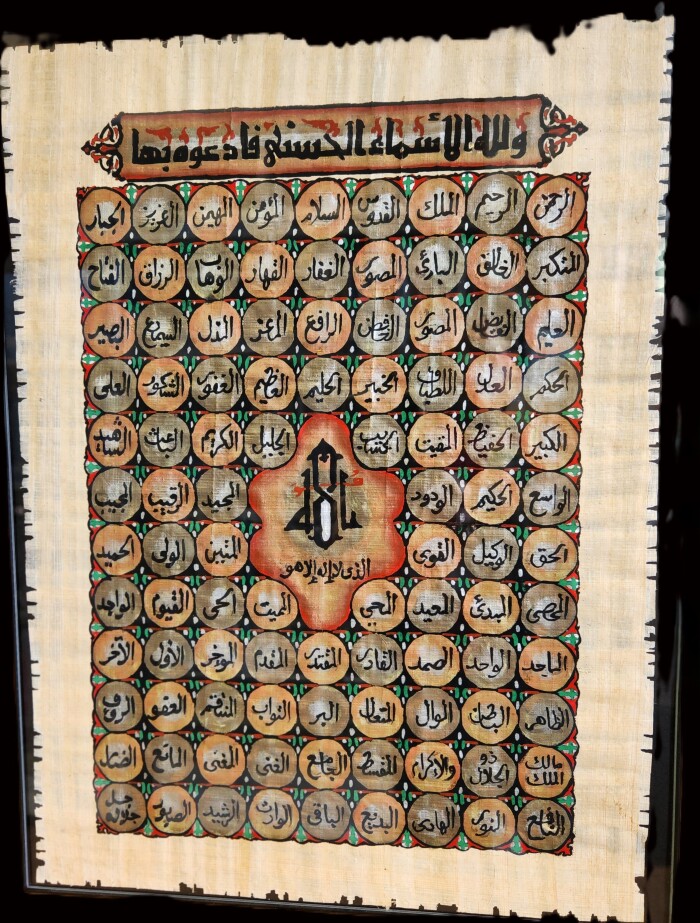 ولله الأسماء الحسنى فادعوه بها
الرحمن الرحيم الملك القدوس السلام المؤمن المهيمن العزيز الجبار
المتكبر الخالق البارئ المصور الغفار القهار الوهاب الرزاق الفتاح
العليم المصور الخافض الرافع المعز المذل السميع البصير
الحكم العدل اللطيف الخبير الحليم العظيم الغفور الشكور العلى
الكبير الحفيظ المقيت الحسيب الجليل الكريم الباعث الشاهد
الواسع الحكيم الودود المجيد الرقيب المجيب
الله
الحق الوكيل القوى المتين الولى الحميد
الذى لا إله إلا هو
المحصى المبدئ المعيد المحي المميت الحى القيوم الواجد
الماجد الواحد الصمد القادر المقتدر المقدم المؤخر الأول الآخر
الظاهر الباطن الوال المتعال البر التواب المنتقم العفو الرؤوف
مالك الملك ذو الجلال والإكرام المقسط الجامع الغنى المغنى المانع الضار
النافع النور الهادى البديع الباقى الوارث الرشيد الصبور جل جلاله